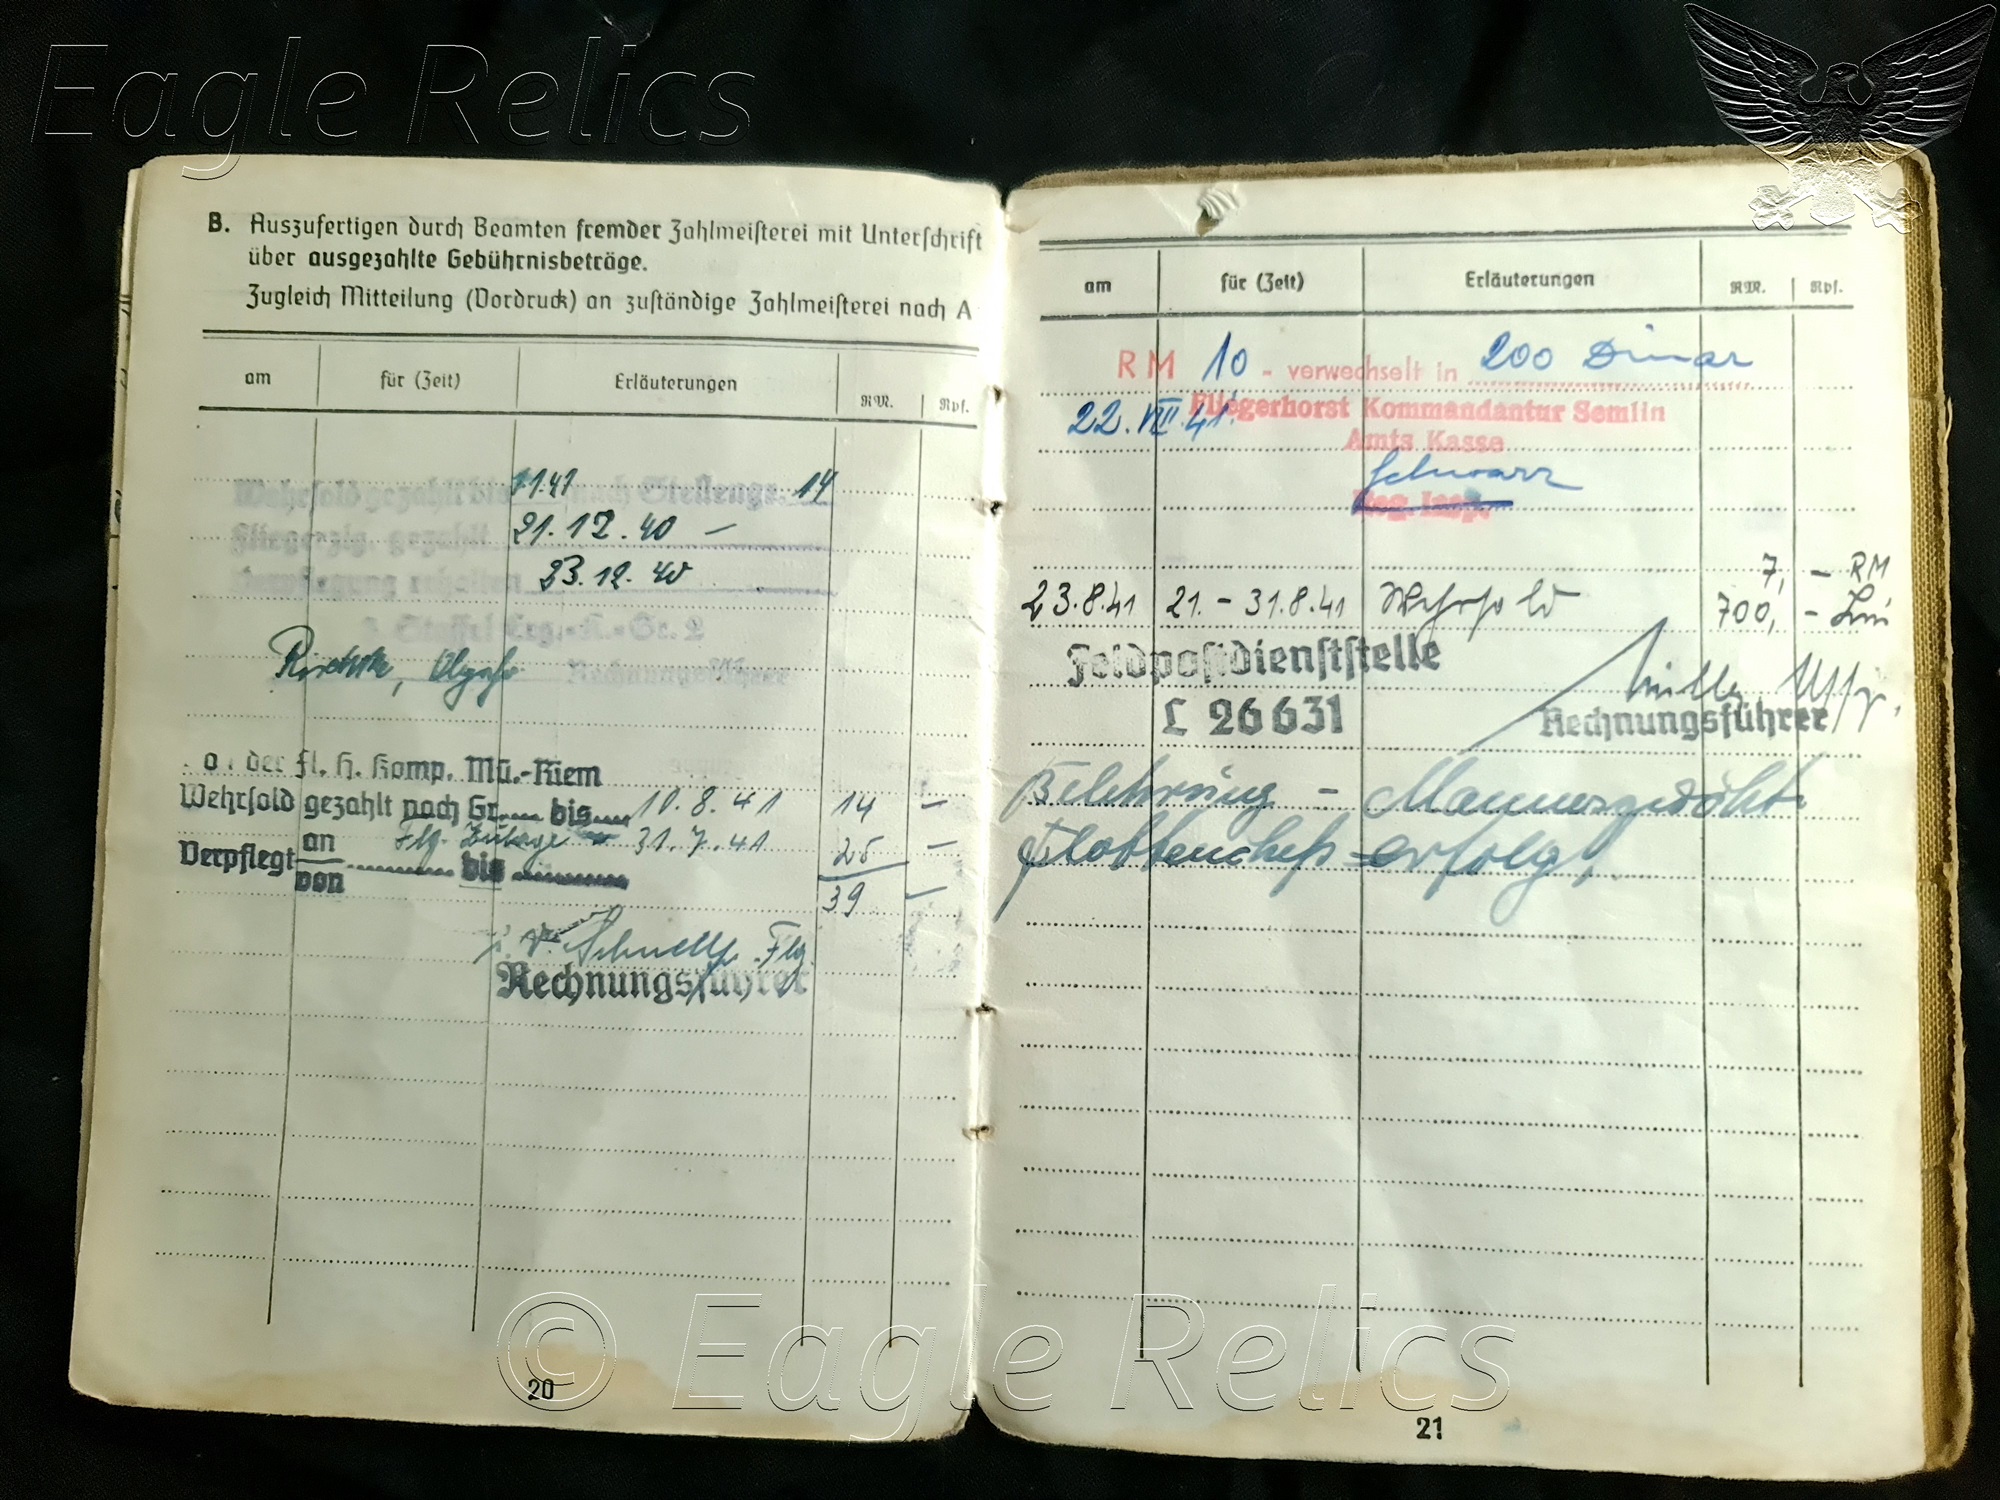 Eagle Relics
B. Auszufertigen durch Beamten fremder Zahlmeisterei mit Unterschrift
über ausgezahlte Gebührnisbeträge.
Zugleich Mitteilung (Vordruck) an zuständige Zahlmeisterei nach A
am für (Zeit) Erläuterungen RM. Rpf.
Wehrsold gezahlt bis 1.1.41 nach Stellengr. 14
Fliegerzlg. gezahlt 21.12.40 —
Verpflegung erhalten 23.12.40
3. Staffel Erg.-K.-Gr. 2
Rechnungsführer
der Fl. H. Komp. Mü.-Riem
Wehrsold gezahlt nach Gr. bis 10.8.41 14 —
Flg. Zulage 31.7.41 25 —
Verpflegt an von bis
39 —
Schnell Flg.
Rechnungsführer
20
am für (Zeit) Erläuterungen RM. Rpf.
RM 10 - verwechselt in 200 Dinar
22.VIII.41. Fliegerhorst Kommandantur Semlin
Amts Kasse
Schwarz
Reg. Insp.
7, — RM
23.8.41 21. - 31.8.41 Wehrsold 700, -
Feldpostdienststelle
L 26631
Müller Uffz.
Rechnungsführer
Belehrung -
erfolgt.
21
© Eagle Relics